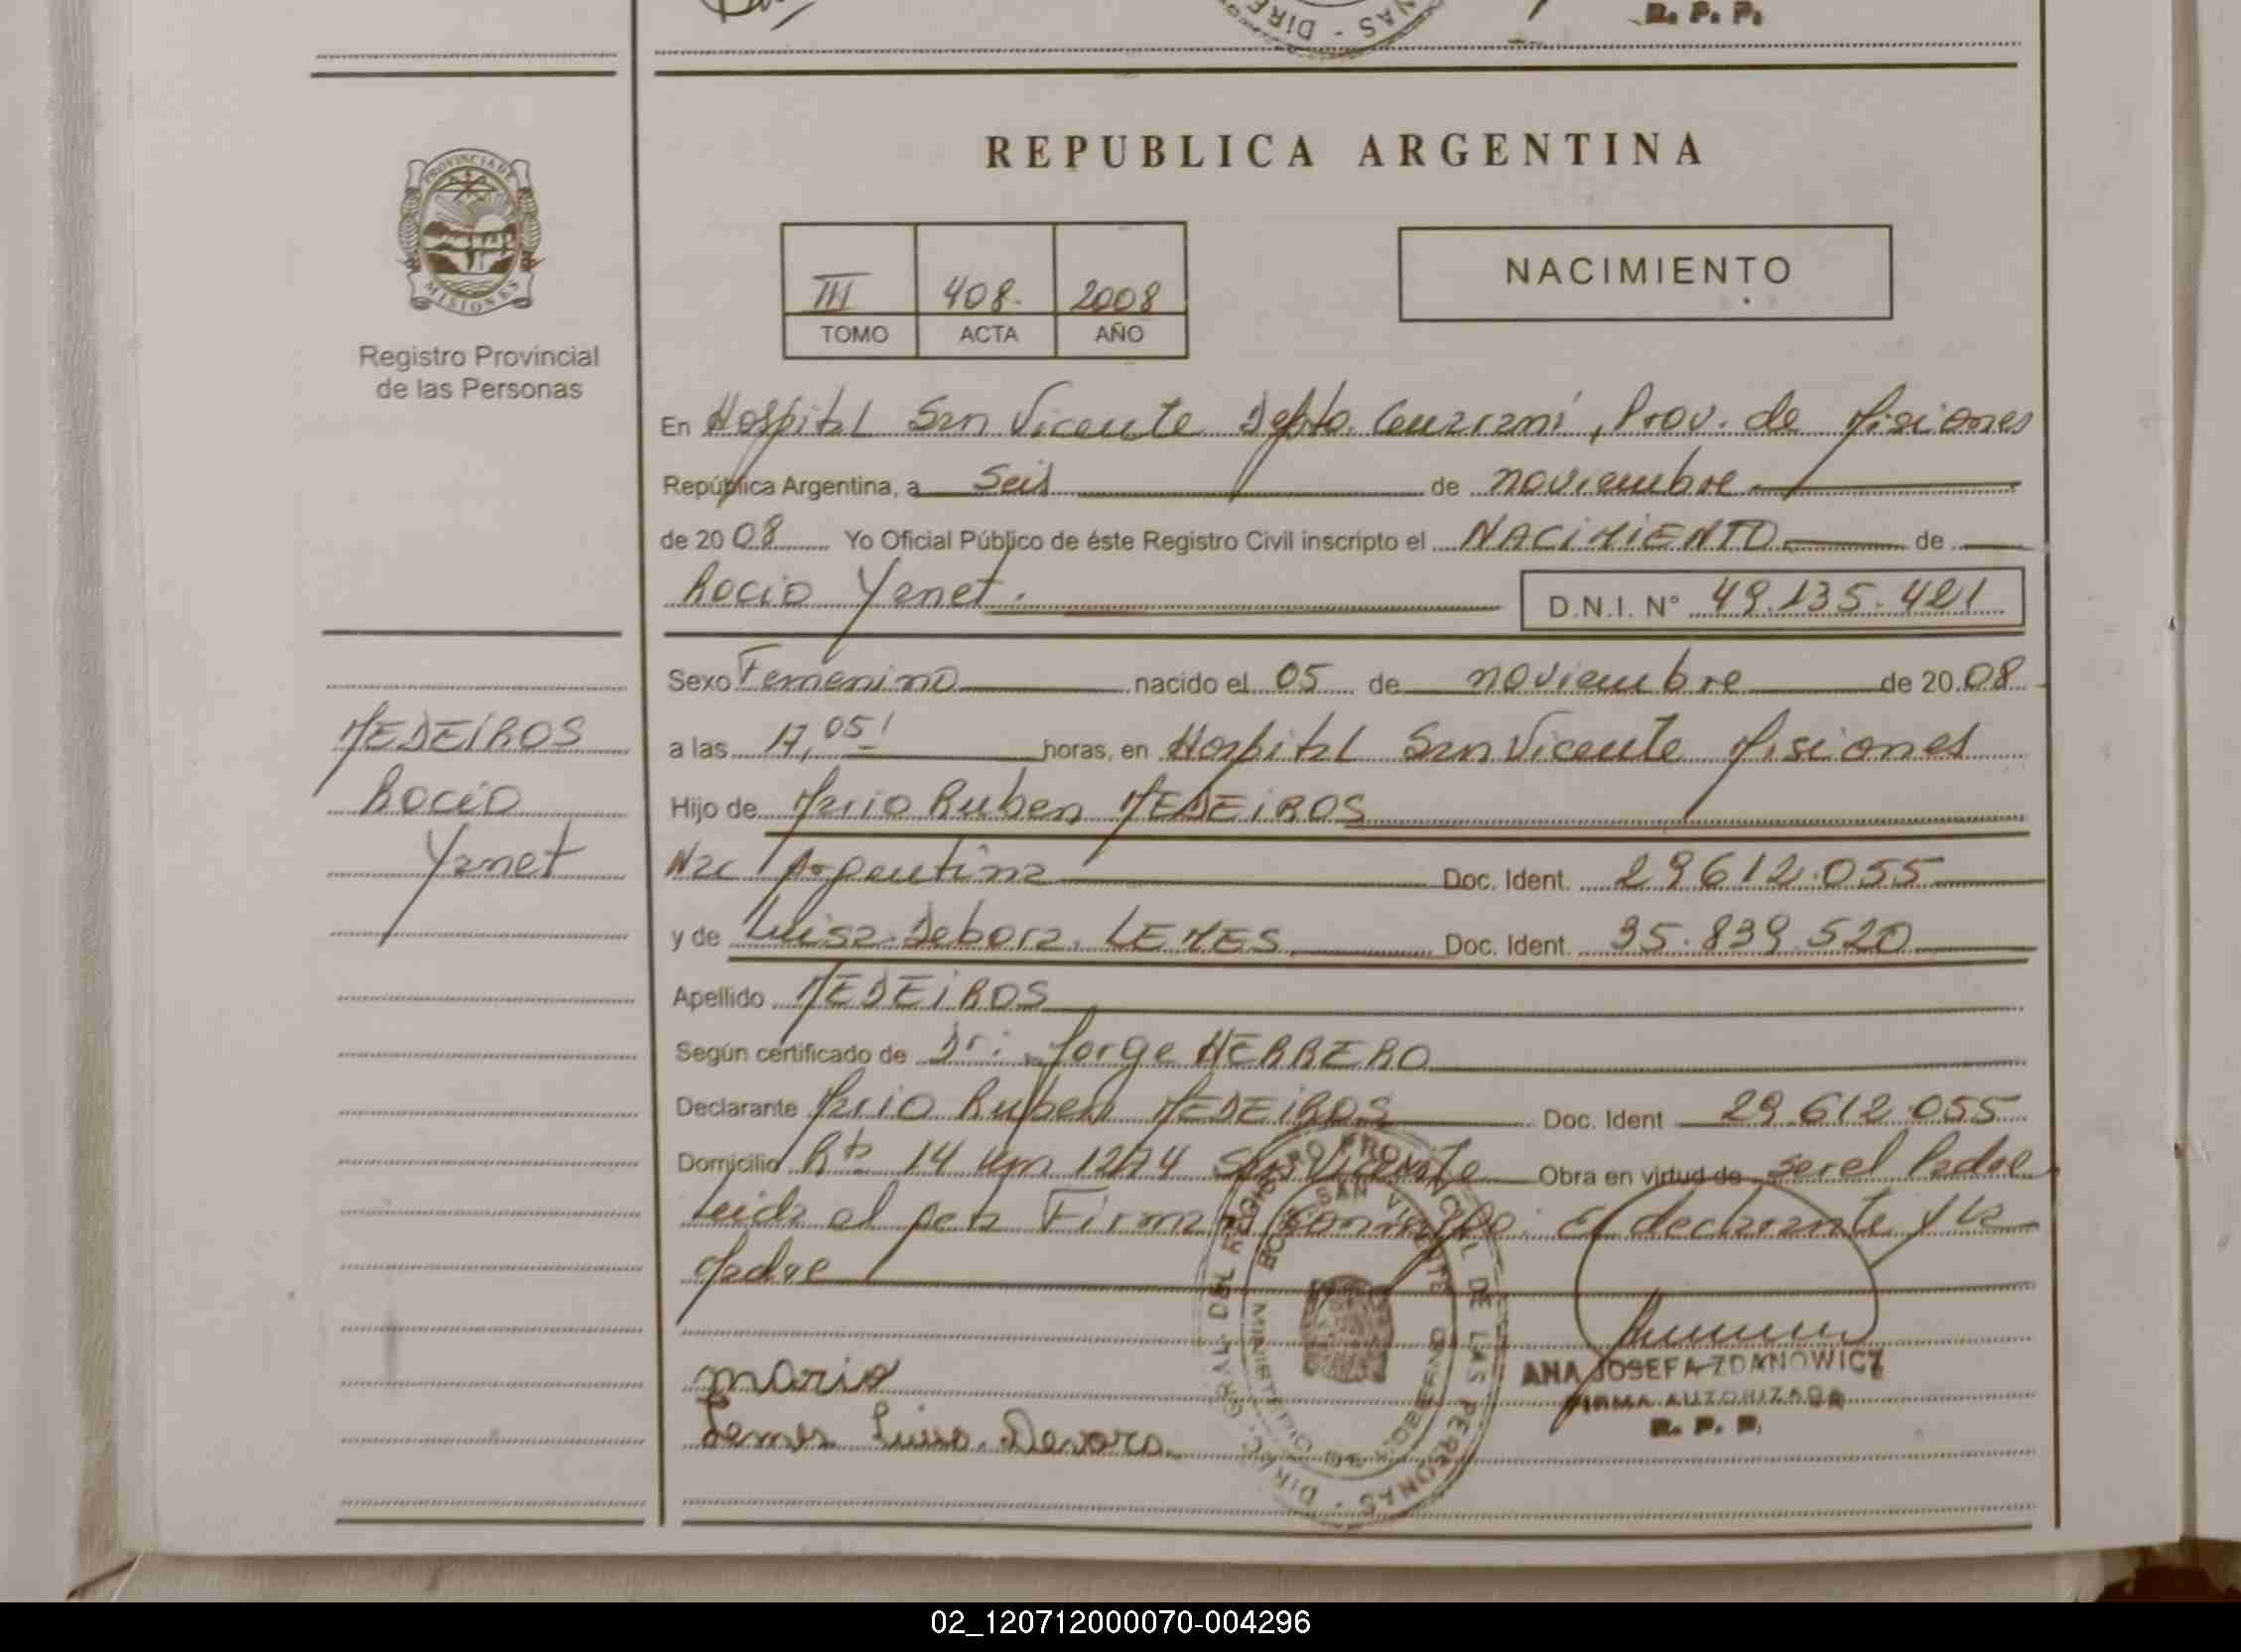 R. P. P.
REPUBLICA ARGENTINA
PROVINCIA DE
MISIONES
Registro Provincial
de las Personas
III 408. 2008
TOMO ACTA AÑO
NACIMIENTO
En Hospital San Vicente Depto. Guaraní, Prov. de Misiones
República Argentina, a Seis de noviembre
de 2008 Yo Oficial Público de éste Registro Civil inscripto el NACIMIENTO de
Rocio Yanet. D.N.I. N° 49.135.421
Sexo Femenino nacido el 05 de noviembre de 2008
MEDEIROS
Rocio
Yanet
a las 17,05' horas, en Hospital San Vicente Misiones
Hijo de Mario Ruben MEDEIROS
Nac Argentina Doc. Ident. 29612.055
y de Luisa Debora LEMES Doc. Ident. 35.839.520
Apellido MEDEIROS
Según certificado de Dr. Jorge HERRERO
Declarante Mario Ruben MEDEIROS Doc. Ident 29.612.055
Domicilio Rta 14 km 1274 San Vicente Obra en virtud de ser el Padre
Leida el acta Firma conmigo: El declarante y la
Madre
mario
Lemes Luisa Devora
ANA JOSEFA ZDANOWICZ
FIRMA AUTORIZADA
R. P. P.
02_120712000070-004296